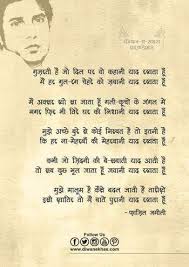 गुज़रती है जो दिल पर वो कहानी याद रखता हूँ
मैं हर गुल-रंग चेहरे को ज़बानी याद रखता हूँ
मैं अक्सर खो सा जाता हूँ गली-कूचों के जंगल में
मगर फिर भी तिरे घर की निशानी याद रखता हूँ
मुझे अच्छे बुरे से कोई निस्बत है तो इतनी है
कि हर ना-मेहरबाँ की मेहरबानी याद रखता हूँ
कभी जो ज़िंदगी की बे-सबाती याद आती है
तो सब कुछ भूल जाता हूँ जवानी याद रखता हूँ
मुझे मालूम है कैसे बदल जाती हैं तारीख़ें
इसी ख़ातिर तो मैं बातें पुरानी याद रखता हूँ
Follow Us
www.diwanekhas.com